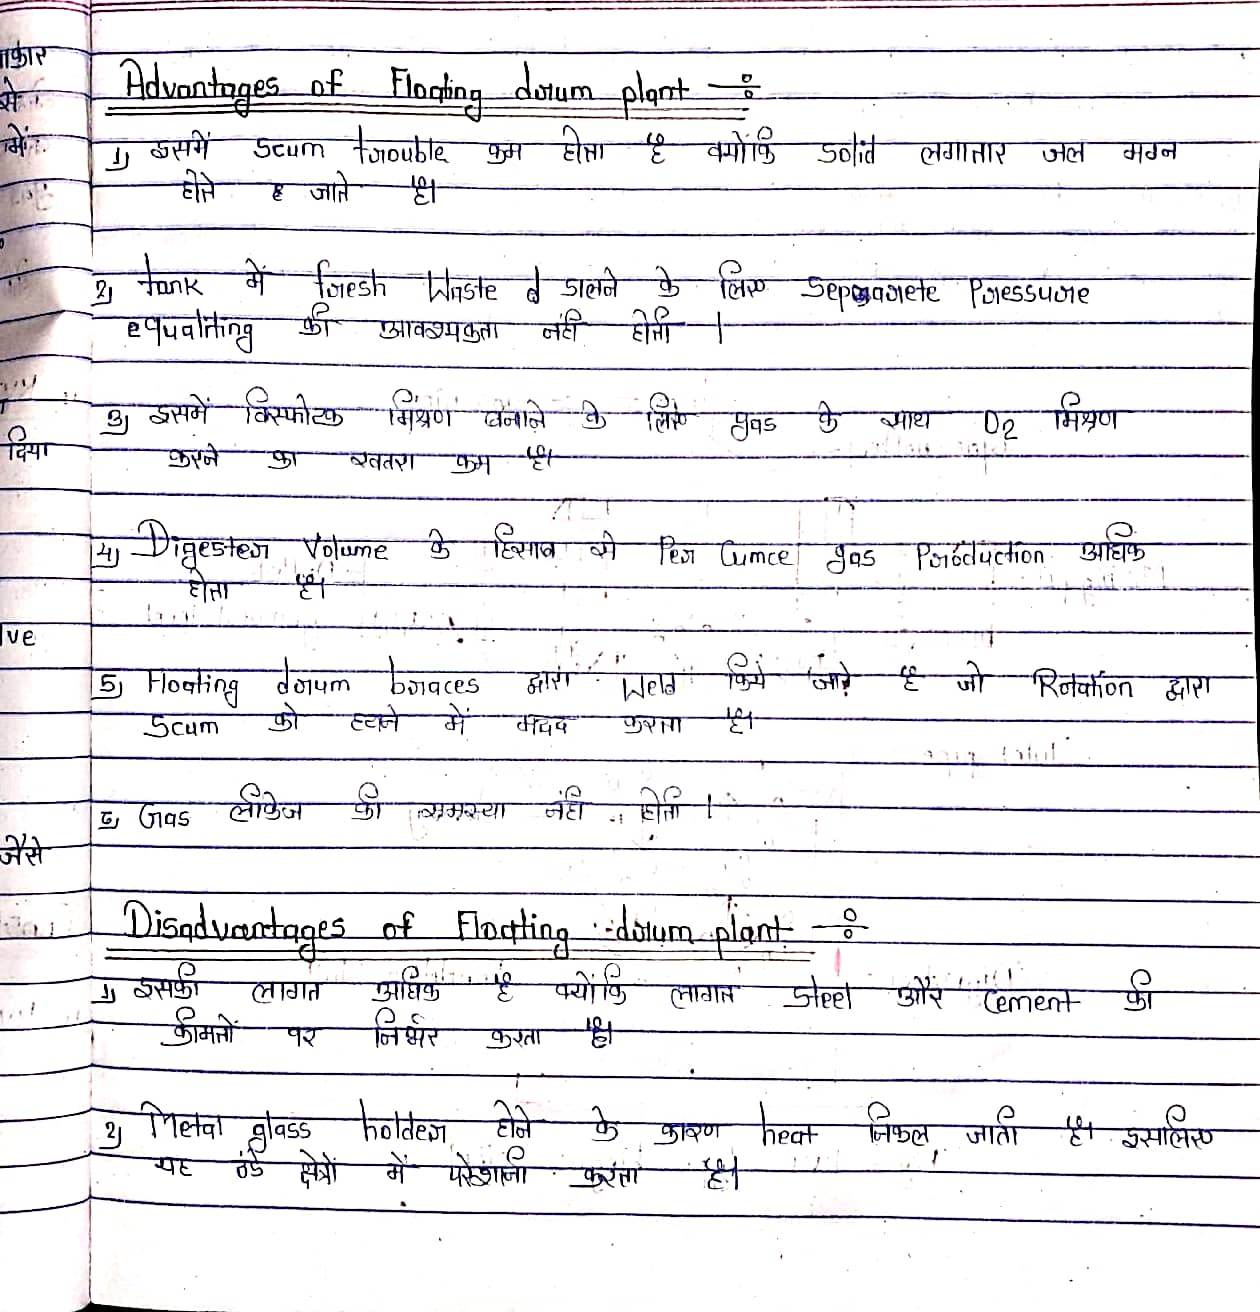 Advantages of Floating drum plant ÷
1) इसमें scum trouble कम होता है क्योंकि solid लगातार जल मग्न
होते ह जाते है।
2) tank में fresh Waste d डालने के लिए Separarete Pressure
equaliting की आवश्यकता नंही होती ।
3) इसमें विस्फोटक मिश्रण बनाने के लिए gas के साथ O2 मिश्रण
करने का खतरा कम है।
4) Digester Volume के हिसाब से Per Cumce gas Production अधिक
होता है।
5) Floating drum braces द्वारा Weld किये जाते है जो Rotation द्वारा
Scum को हटाने में मदद करता है।
6) Gas लीकेज की समस्या नंही होती ।
Disadvantages of Floating drum plant ÷
1) इसकी लागत अधिक है क्योंकि लागत steel और cement की
कीमतों पर निर्भर करता है।
2) Metal glass holder होने के कारण heat निकल जाती है। इसलिए
यह ठंडे क्षेत्रों में परेशानी करता है।
से
में
दिया
ve
जैसे